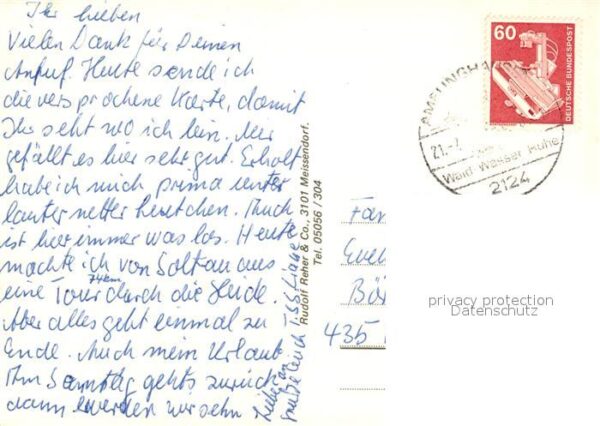 Ihr lieben
Vielen Dank für Deinen
Anruf. Heute sende ich
die versprochene Karte, damit
Ihr seht wo ich bin. Mir
gefällt es hier sehr gut. Erholt
habe ich mich prima unter
lauter netter Leutchen. Auch
ist hier immer was los. Heute
machte ich von Soltau aus
eine Tour durch die Heide.
74 km
Aber alles geht einmal zu
Ende. Auch mein Urlaub.
Am Samstag gehts zurück
dann werden wir sehn
Liebe
Grüße
Rudolf Reher & Co., 3101 Meissendorf.
Tel. 05056 / 304
60
DEUTSCHE BUNDESPOST
AMELINGHAUSEN
21.-7.
Wald Wasser Ruhe
2124
Fam
435
privacy protection
Datenschutz